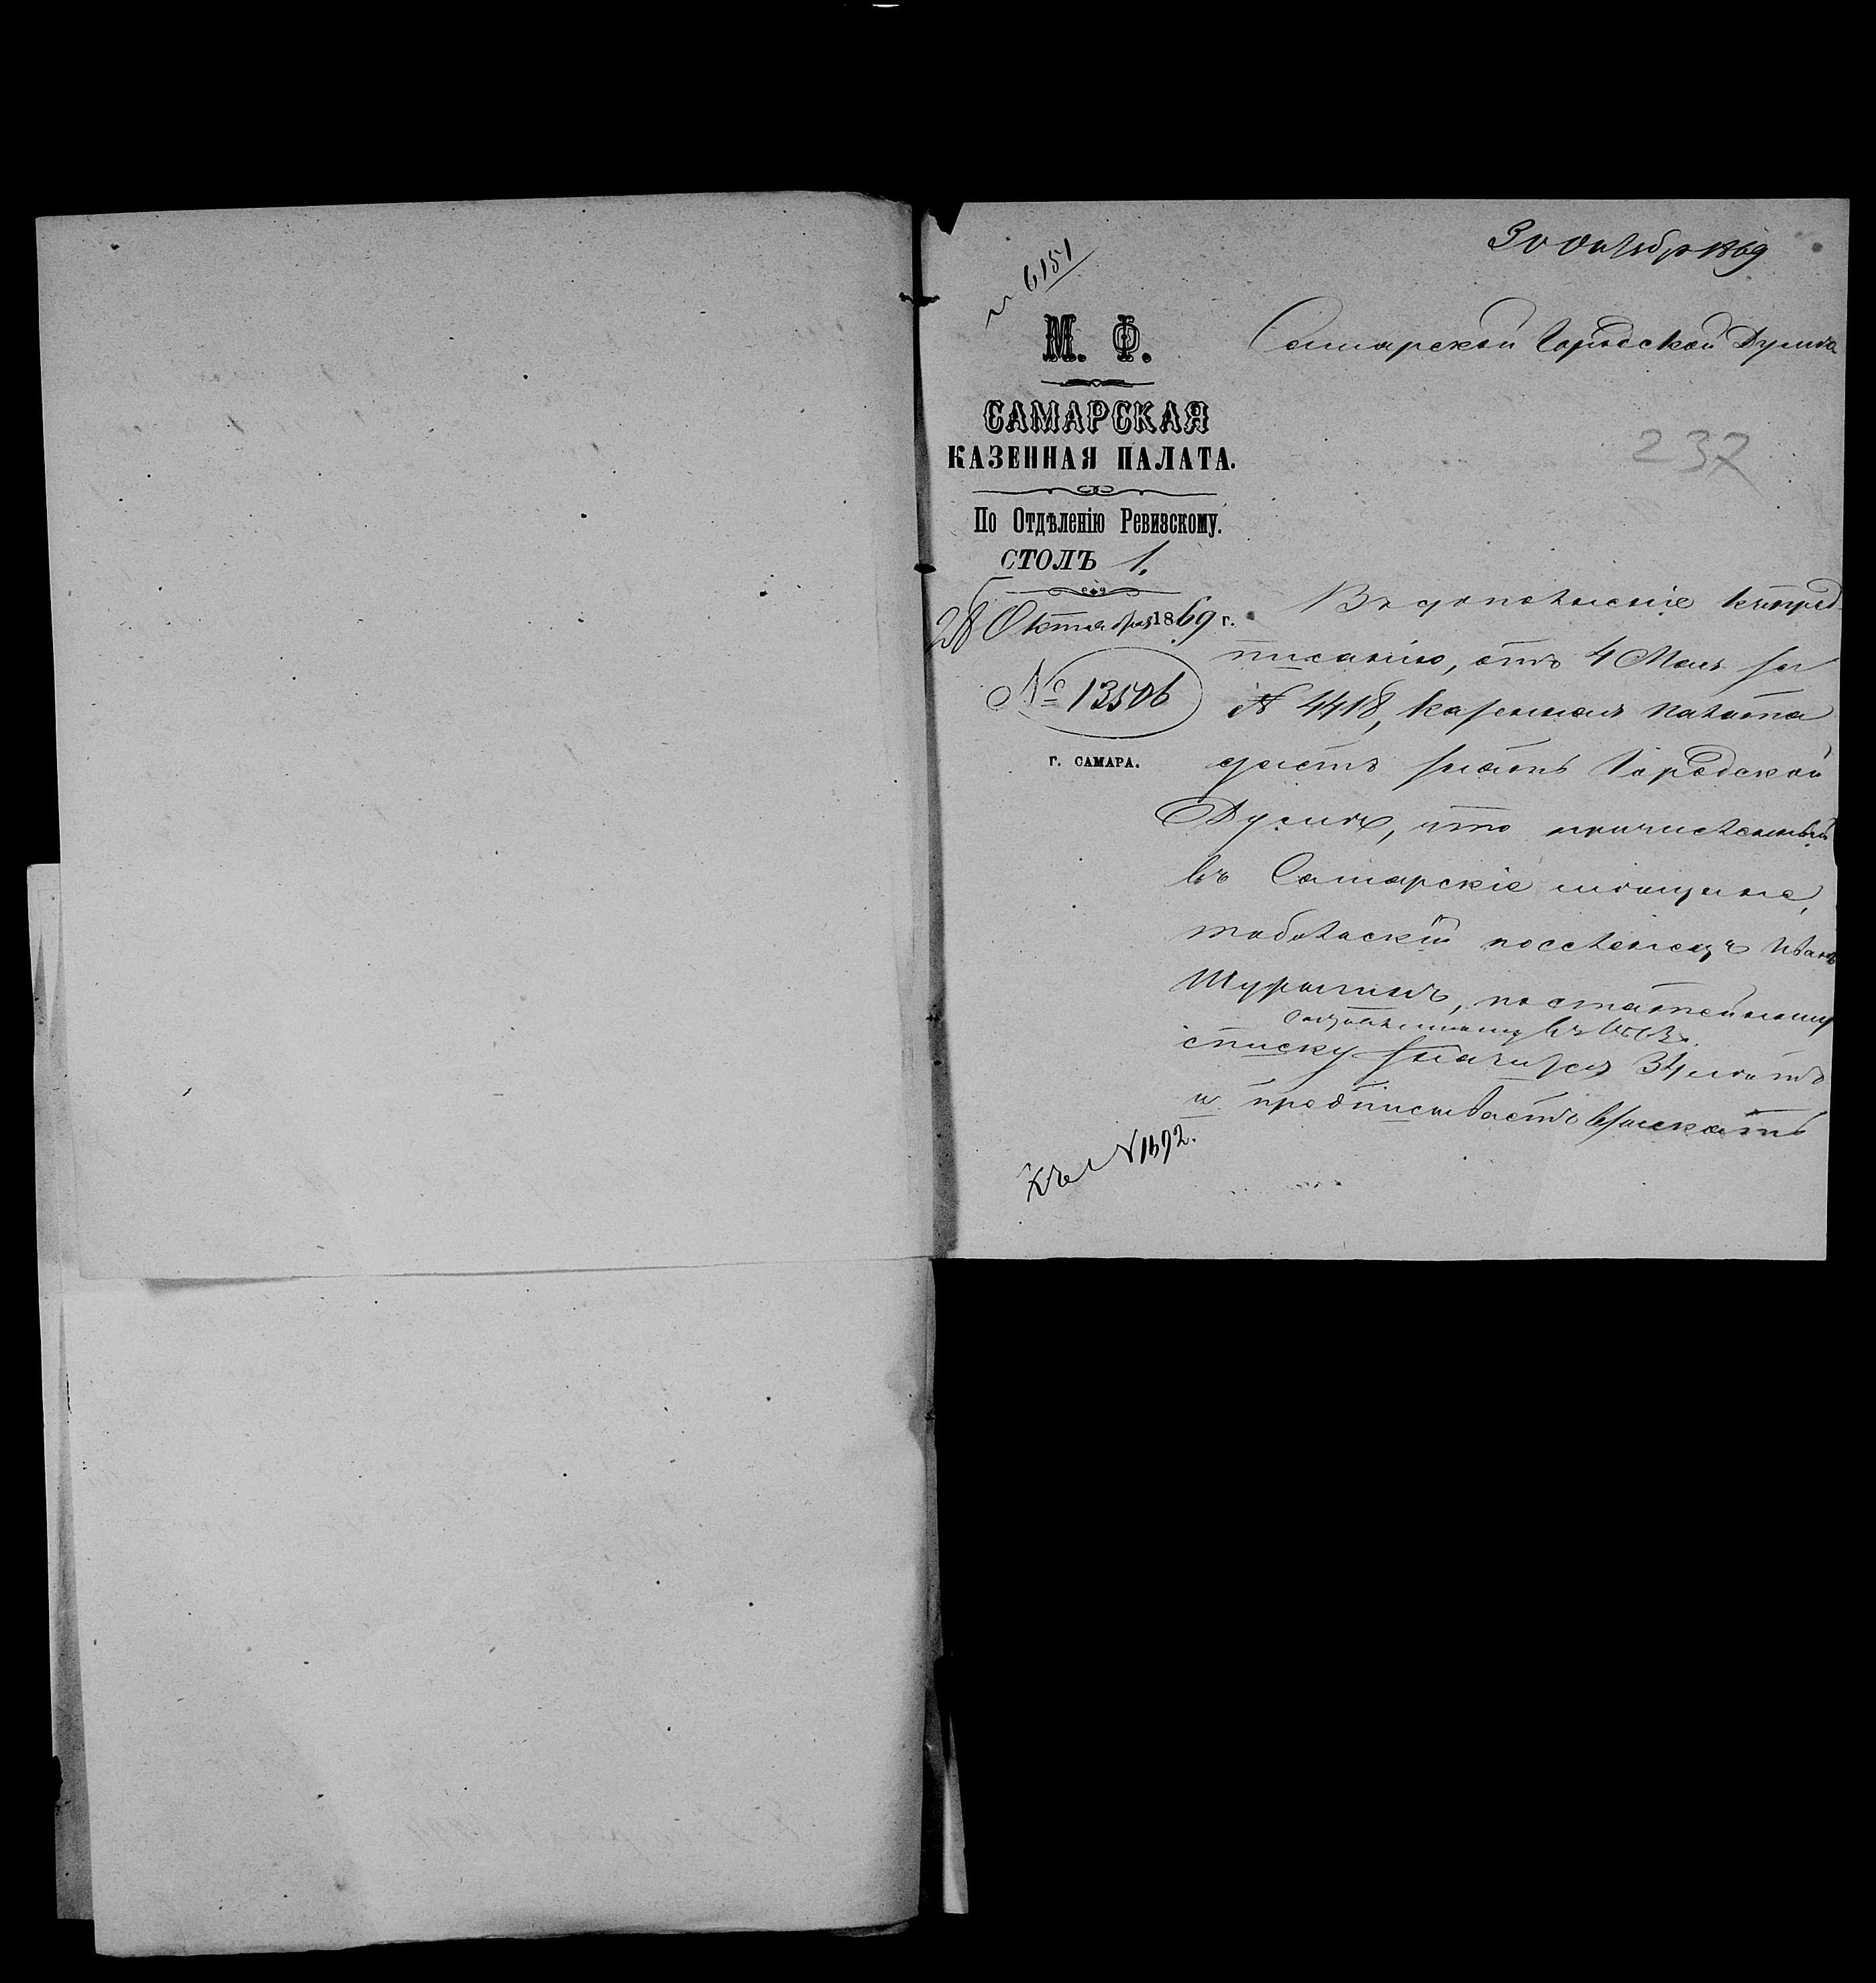 30 Октября 1869
№ 6151
М. Ф.
САМАРСКАЯ
КАЗЕННАЯ ПАЛАТА.
По Отдѣленію Ревизскому.
СТОЛЪ 1.
28 Октября 1869 г.
№ 13506
Г. САМАРА.
Самарской Городской Думѣ
237
Въ дополненіе къ пред-
писанію, отъ 4 Мая за
№ 4418, Казенная палата
даетъ знать Городской
Думѣ, что причисленный
въ Самарскіе мѣщане,
тобольскій поселенецъ Иванъ
по статейному
въ
списку значился 34 лѣтъ
и предписываетъ взыскать
№ 1692.